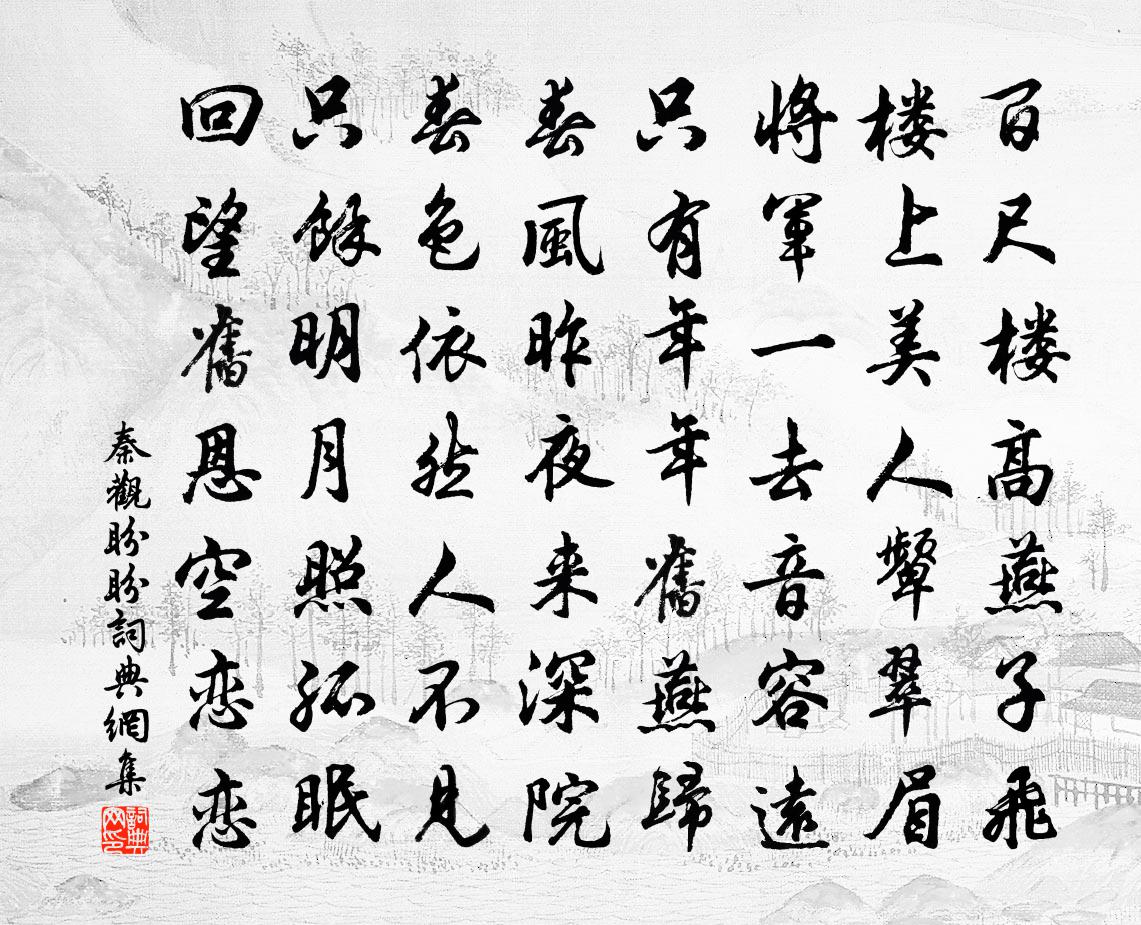 百尺楼高燕子飛
楼上美人顰翠眉
將軍一去音容遠
只有年年舊燕歸
春風昨夜来深院
春色依然人不見
只餘明月照孤眠
回望舊恩空恋恋
秦觀盼盼詞典網集
詞典
网印